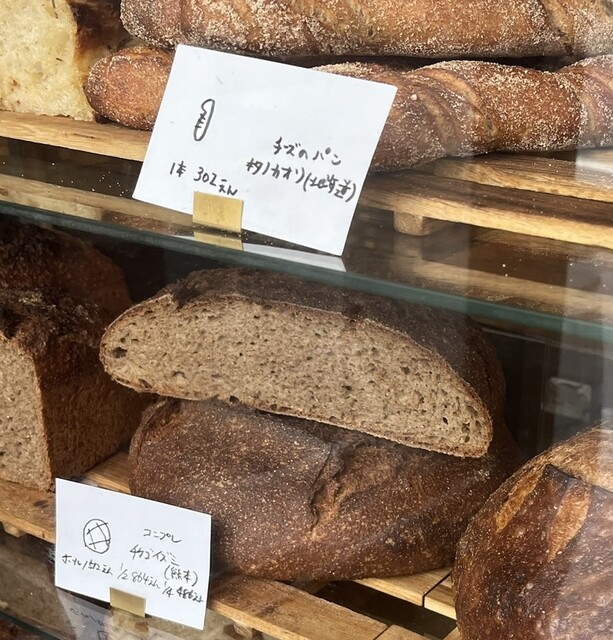 チーズのパン
1本 302えん
キタノカオリ(北海道)
コンプレ
チクゴイズミ
(熊本)
ホール 1512えん 1/2 864えん 1/4 486えん